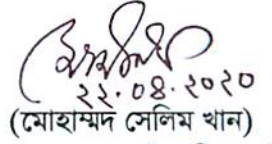 ২২.০৪.২০২০
(মোহাম্মদ সেলিম খান)